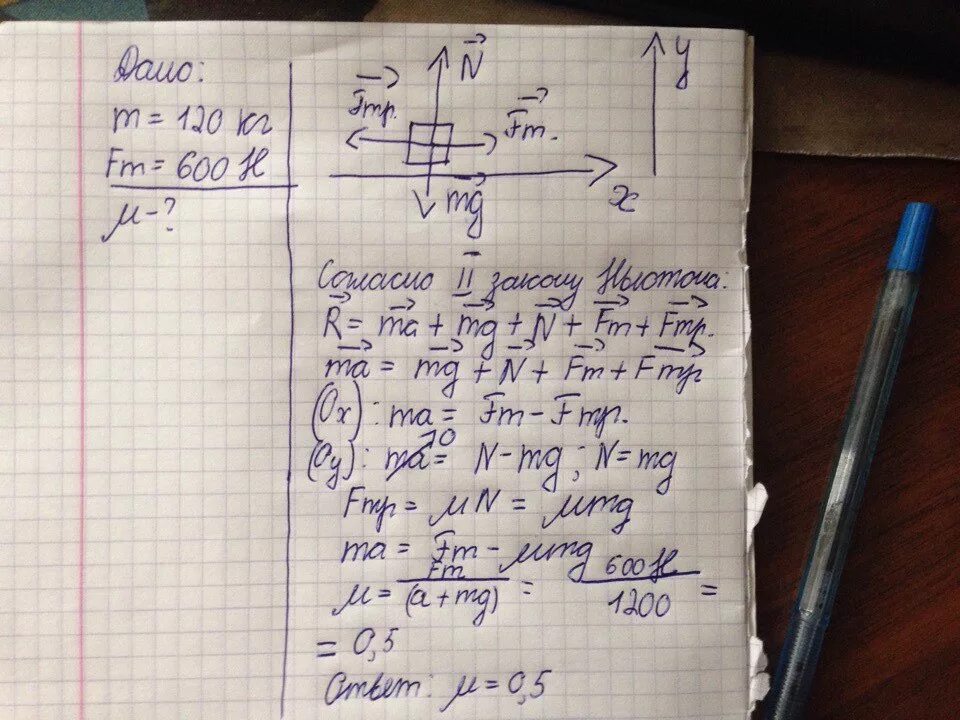 Дано:
m = 120 кг
Fт = 600 Н
μ - ?
N
y
Fтр.
Fт.
mg
x
Согласно II закону Ньютона:
R = ma + mg + N + Fт + Fтр.
ma = mg + N + Fт + Fтр
(Ox): ma = Fт - Fтр.
(Oy): ma = N - mg; N = mg
0
Fтр = μN = μmg
ma = Fт - μmg
μ = Fт/(a + mg) = 600 Н/1200 =
= 0,5
Ответ: μ = 0,5